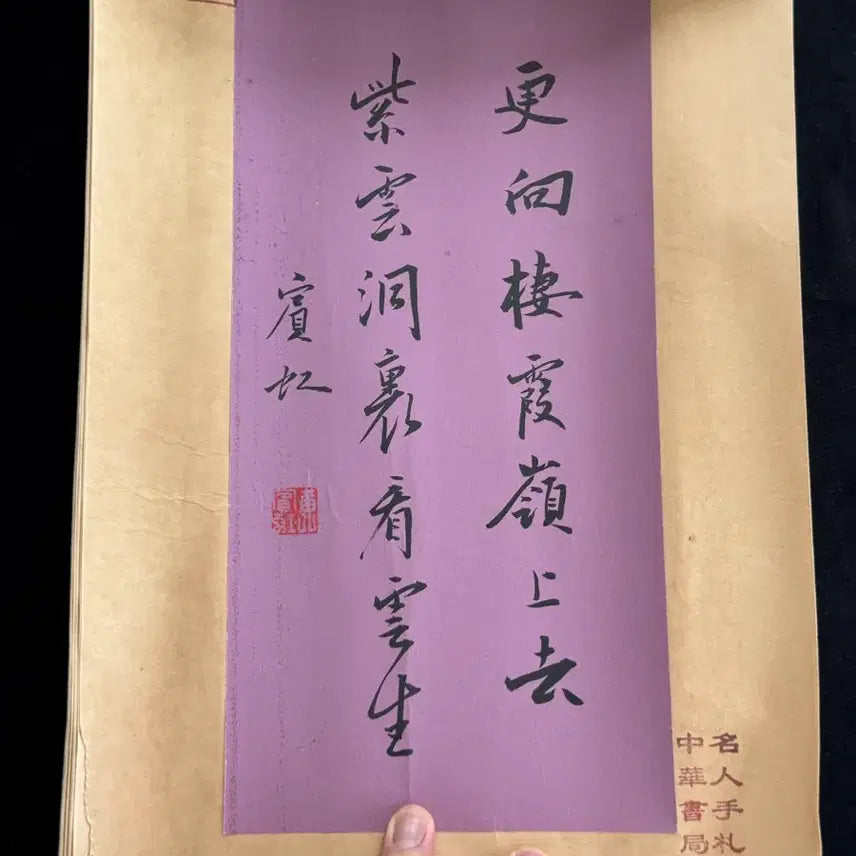 更向棲霞嶺上去
紫雲洞裏看雲生
賓虹
名人手札
中華書局